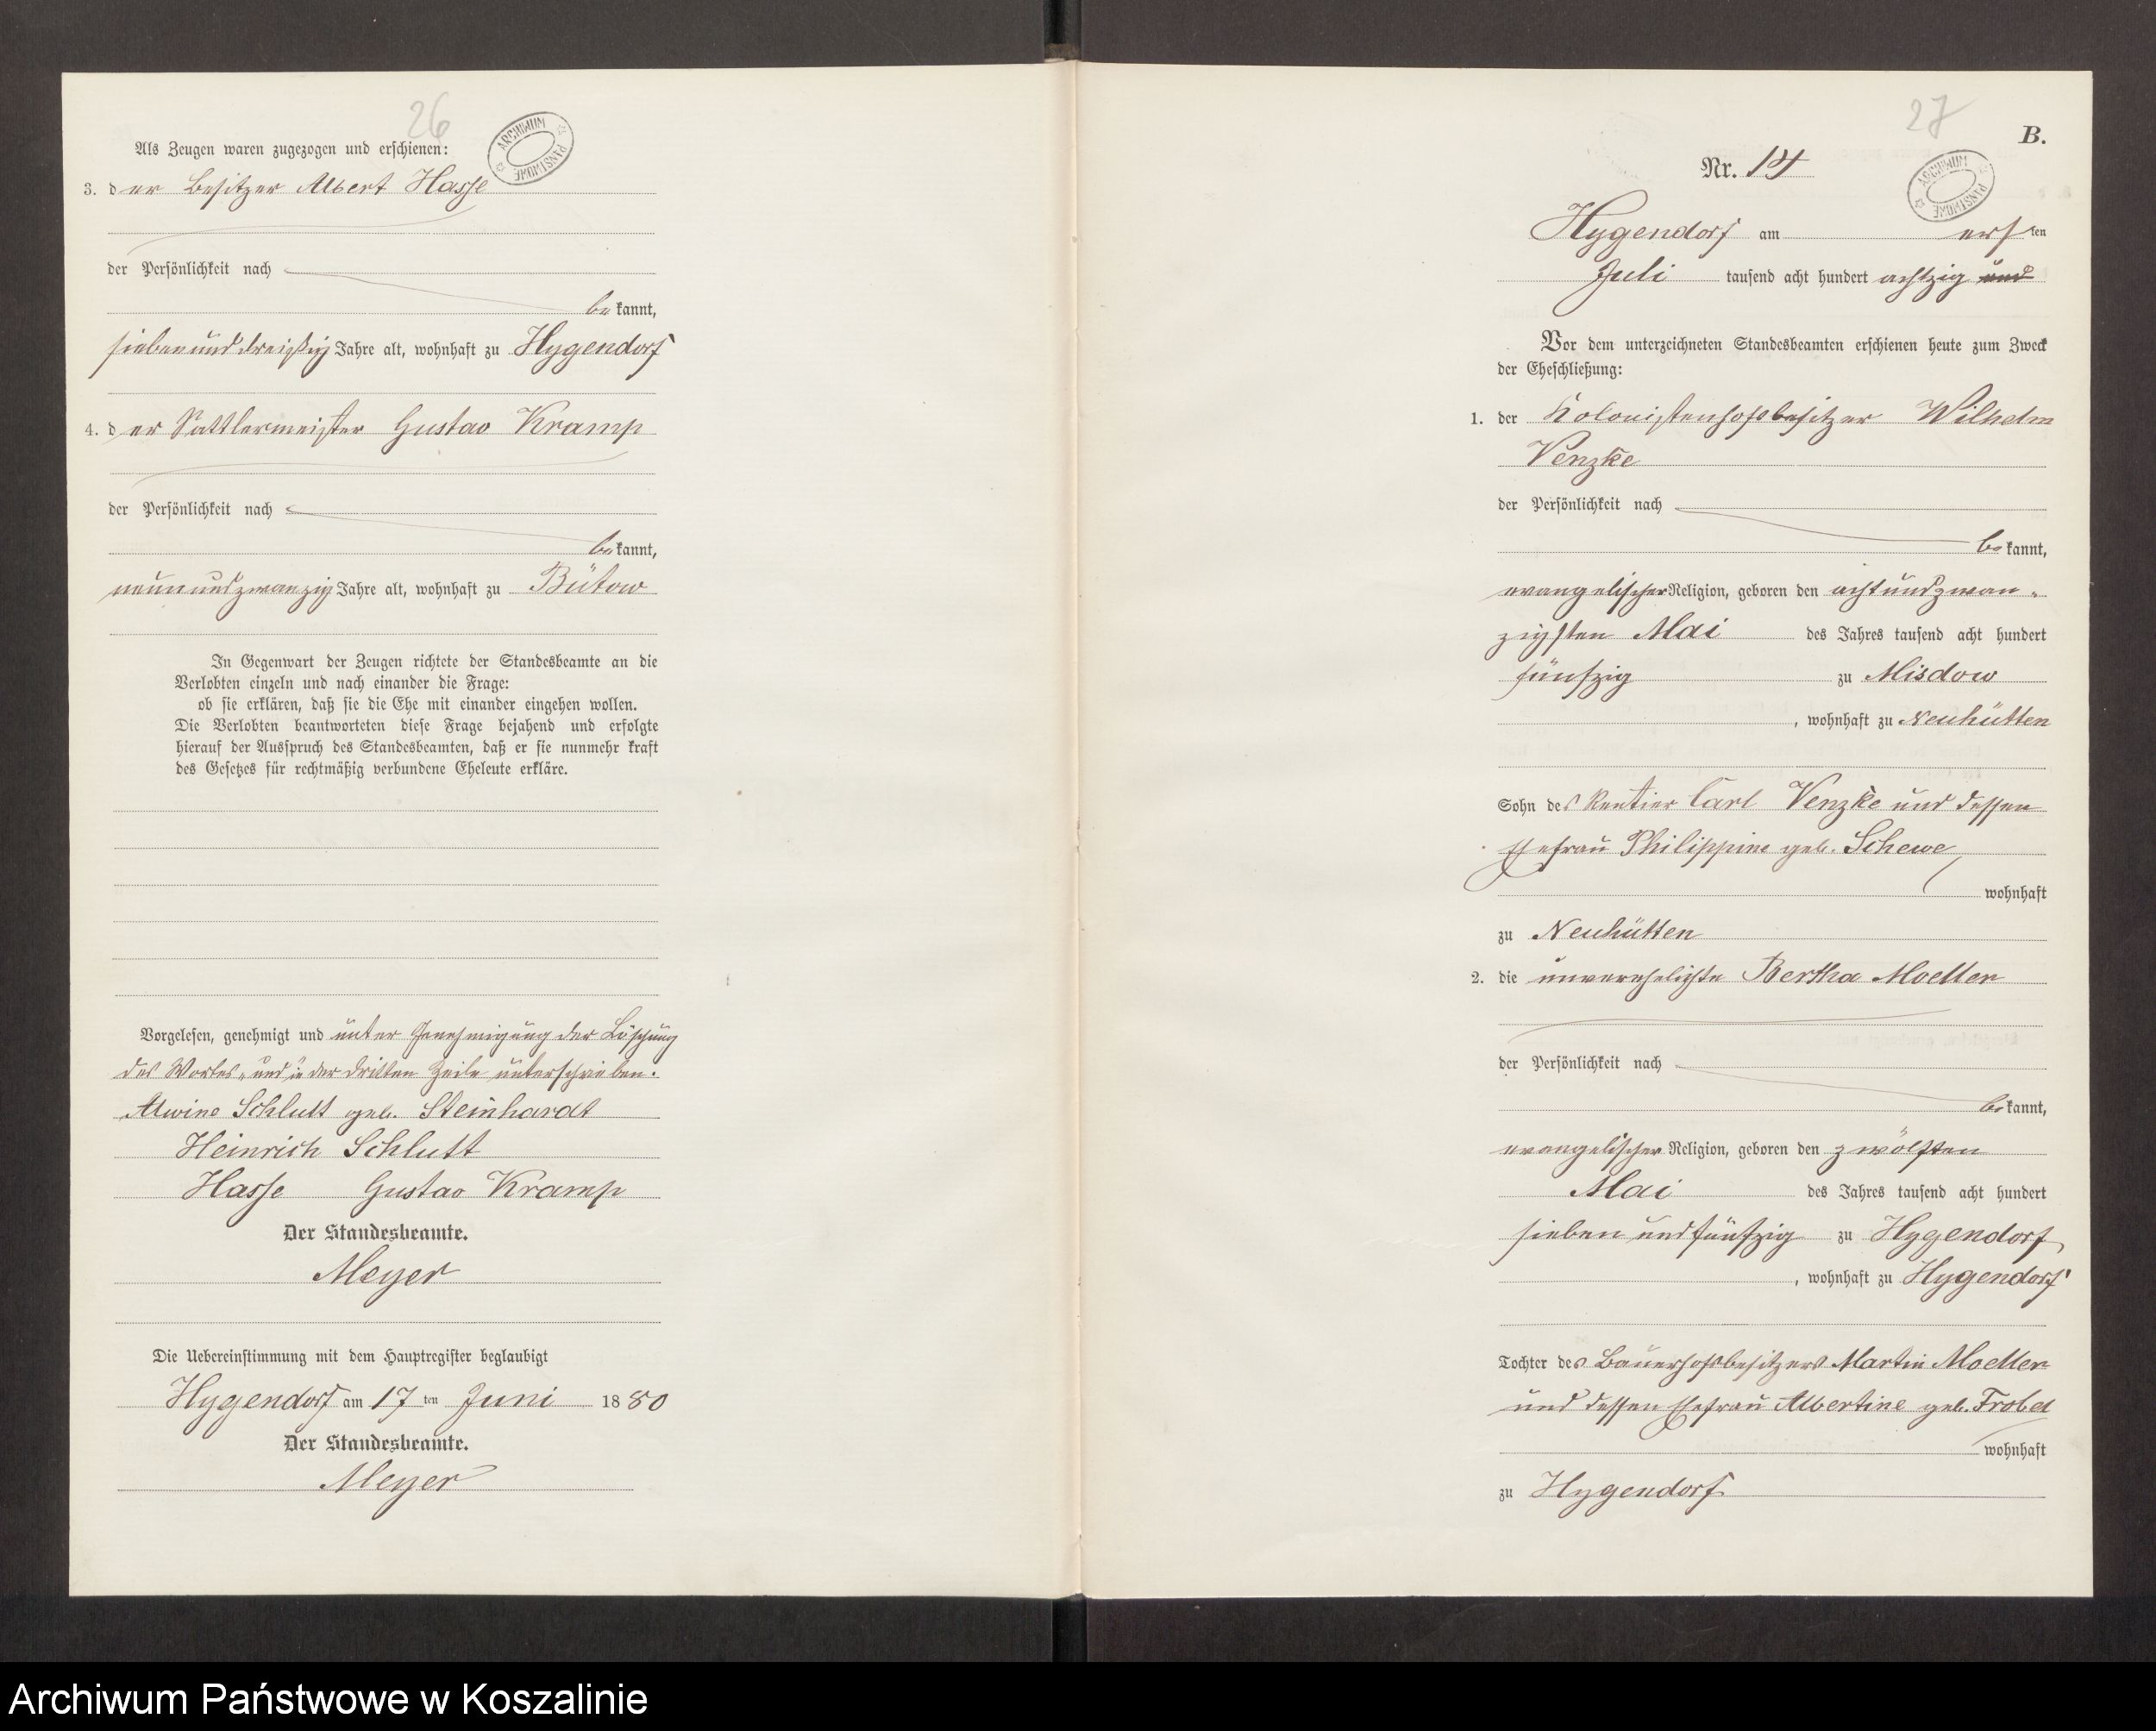 26
Als Zeugen waren zugezogen und erschienen:
ARCHIWUM PAŃSTWOWE
3. der Besitzer Albert Hasse
der Persönlichkeit nach
bekannt,
siebenunddreißig Jahre alt, wohnhaft zu Hygendorf
4. der Sattlermeister Gustav Kramp
der Persönlichkeit nach
bekannt,
neunundzwanzig Jahre alt, wohnhaft zu Bütow
In Gegenwart der Zeugen richtete der Standesbeamte an die
Verlobten einzeln und nach einander die Frage:
ob sie erklären, daß sie die Ehe mit einander eingehen wollen.
Die Verlobten beantworteten diese Frage bejahend und erfolgte
hierauf der Ausspruch des Standesbeamten, daß er sie nunmehr kraft
des Gesetzes für rechtmäßig verbundene Eheleute erkläre.
Vorgelesen, genehmigt und unter Genehmigung der Löschung
des Wortes „und“ in der dritten Zeile unterschrieben.
Alwine Schlutt geb. Steinhardt
Heinrich Schlutt
Hasse Gustav Kramp
Der Standesbeamte.
Meyer
Die Uebereinstimmung mit dem Hauptregister beglaubigt
Hygendorf am 17 ten Juni 1880
Der Standesbeamte.
Meyer
27
B.
Nr. 14
ARCHIWUM PAŃSTWOWE
Hygendorf am ersten
Juli tausend acht hundert achtzig und
Vor dem unterzeichneten Standesbeamten erschienen heute zum Zweck
der Eheschließung:
1. der Kolonistenhofsbesitzer Wilhelm
Venzke
der Persönlichkeit nach
bekannt,
evangelischer Religion, geboren den achtundzwan-
zigsten Mai des Jahres tausend acht hundert
fünfzig zu Misdow
, wohnhaft zu Neuhütten
Sohn des Rentier Carl Venzke und dessen
Ehefrau Philippine geb. Schewe
wohnhaft
zu Neuhütten
2. die unverehelichte Bertha Moeller
der Persönlichkeit nach
bekannt,
evangelischer Religion, geboren den zwölften
Mai des Jahres tausend acht hundert
sieben und fünfzig zu Hygendorf
, wohnhaft zu Hygendorf
Tochter des Bauerhofsbesitzers Martin Moeller
und dessen Ehefrau Albertine geb. Frobel
wohnhaft
zu Hygendorf
Archiwum Państwowe w Koszalinie